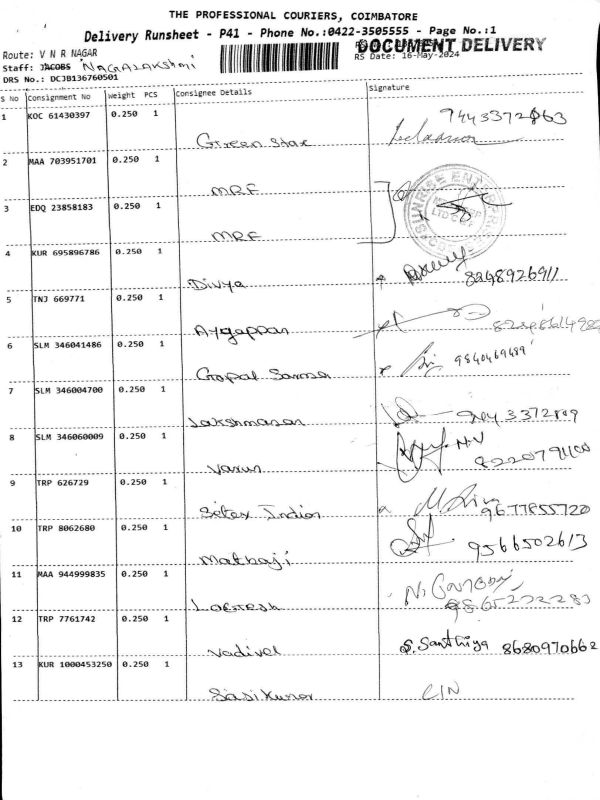 THE PROFESSIONAL COURIERS, COIMBATORE
Delivery Runsheet - P41 - Phone No.:0422-3505555 - Page No.:1
DOCUMENT DELIVERY
Route: V N R NAGAR
RS Date: 16-May-2024
Staff: JACOBS NAGALAKSHMI
DRS No.: DCJB136760501
S No Consignment No Weight PCS Consignee Details Signature
1 KOC 61430397 0.250 1 Green Star
2 MAA 703951701 0.250 1 MRF
3 EDQ 23858183 0.250 1 MRF
SUNRISE
4 KUR 695896786 0.250 1 Divya 8248926911
5 TNJ 669771 0.250 1 Ayyappan
6 SLM 346041486 0.250 1 Gopal 9840469489
7 SLM 346004700 0.250 1 Lakshmanan
8 SLM 346060009 0.250 1 Varun N.V
9 TRP 626729 0.250 1 Indion 9677855720
10 TRP 8062680 0.250 1 Mathaji 9566502613
11 MAA 944999835 0.250 1
12 TRP 7761742 0.250 1 Vadivel S. Santhiya 8680970662
13 KUR 1000453250 0.250 1 Sasikumar